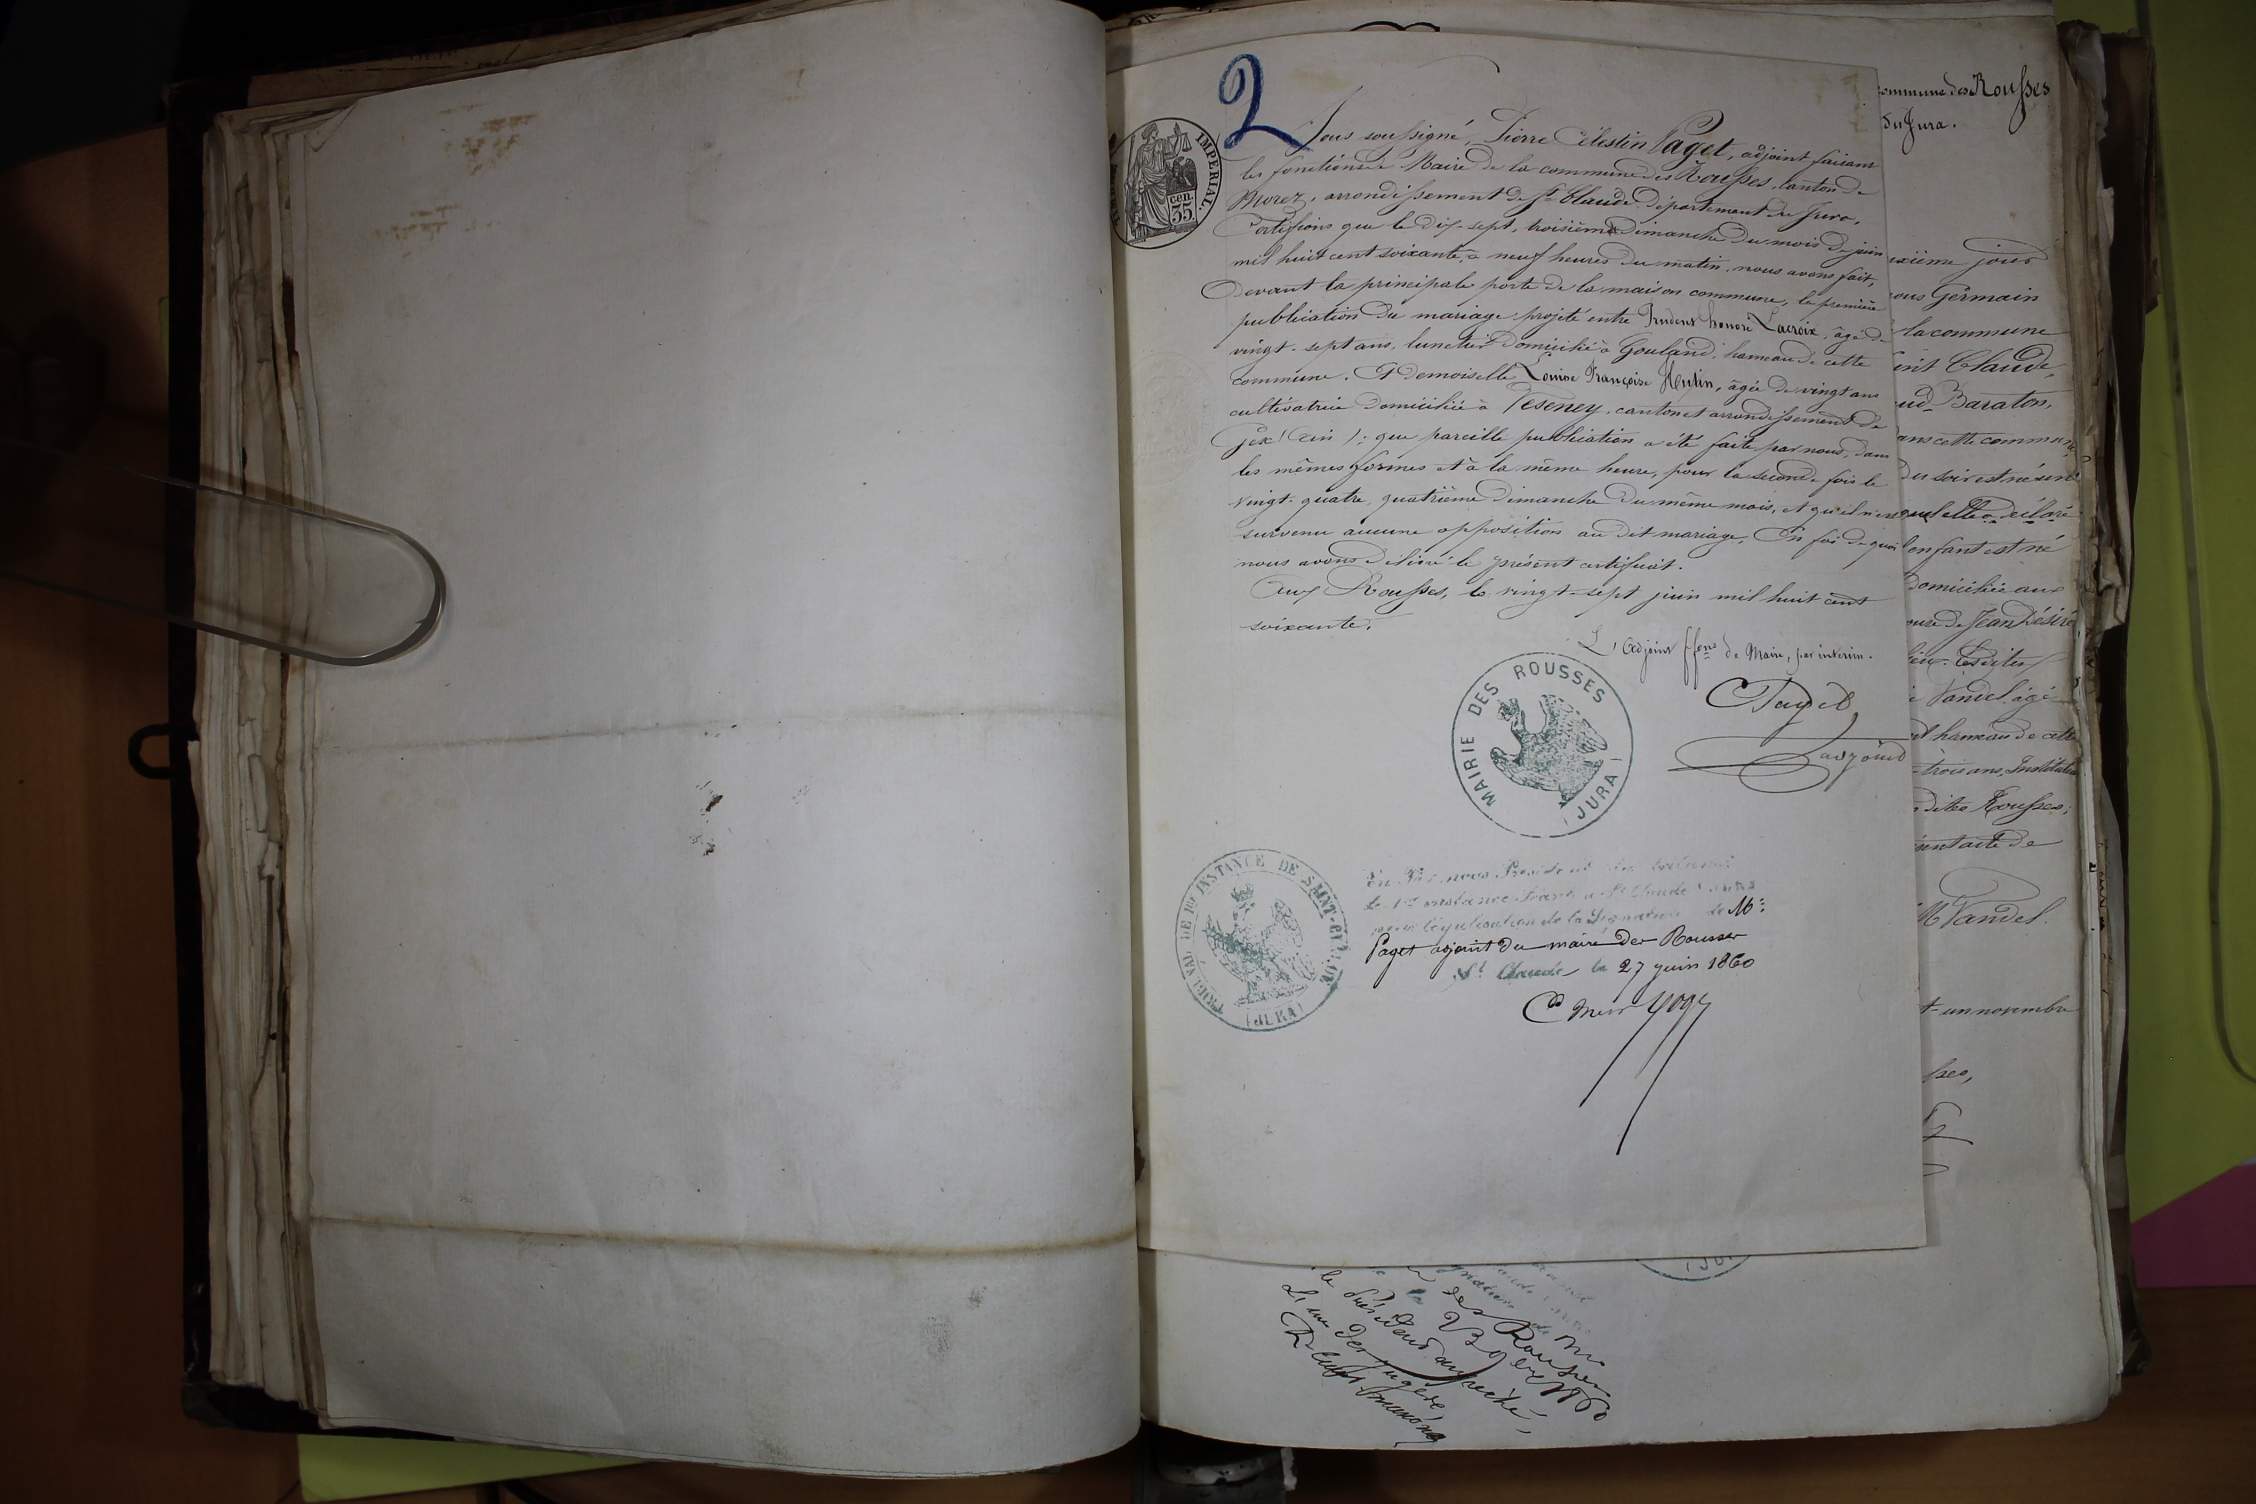 2
IMPERIAL.
cen. 35
Nous soussigné, Pierre Célestin Paget, adjoint faisant
les fonctions de Maire de la commune des Rousses, canton de
Morez, arrondissement de St Claude département du Jura,
Certifions que le dix-sept, troisième dimanche du mois de juin
mil huit cent soixante, à neuf heures du matin, nous avons fait,
devant la principale porte de la maison commune, la première
publication du mariage projeté entre Prudent honoré Lacroix, âgé de
vingt-sept ans, lunetier domicilié à Gouland, hameau de cette
commune. Et demoiselle Louise Françoise Hutin, âgée de vingt ans
cultivatrice domiciliée à Veseney, canton et arrondissement de
Gex (Ain); que pareille publication a été faite par nous, dans
les mêmes formes et à la même heure, pour la seconde fois le
vingt-quatre, quatrième dimanche du même mois, et qu'il n'est
survenu aucune opposition au dit mariage. En foi de quoi
nous avons délivré le présent certificat.
Aux Rousses, le vingt-sept juin mil huit cent
soixante.
L'adjoint ffons de Maire, par interim.
Paget
adjoint
MAIRIE DES ROUSSES
(JURA)
TRIBUNAL DE 1re INSTANCE DE SAINT-CLAUDE
(JURA)
Vu par nous Président du tribunal
de 1re instance séant à St Claude
pour légalisation de la Signature de Mr
Paget adjoint du maire des Rousses
St Claude le 27 juin 1860
commune des Rousses
du Jura.
xième jour
ous Germain
la commune
int Claude,
ud Baraton,
dans cette commune
du soir est né un
quel elle a déclaré
l'enfant est né
domiciliée aux
de Jean Désiré
Vandel âgé
hameau de cette
trois ans, Instituteur
dites Rousses;
acte de
M Vandel.
t-un novembre
des Rousses
le Président empêché,
L'un des juges,